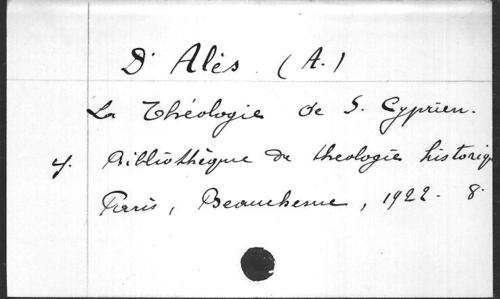 D' Alès (A.)
La Théologie de S. Cyprien.
Bibliothèque de theologie historiq
Paris, Beauchesne, 1922. 8.